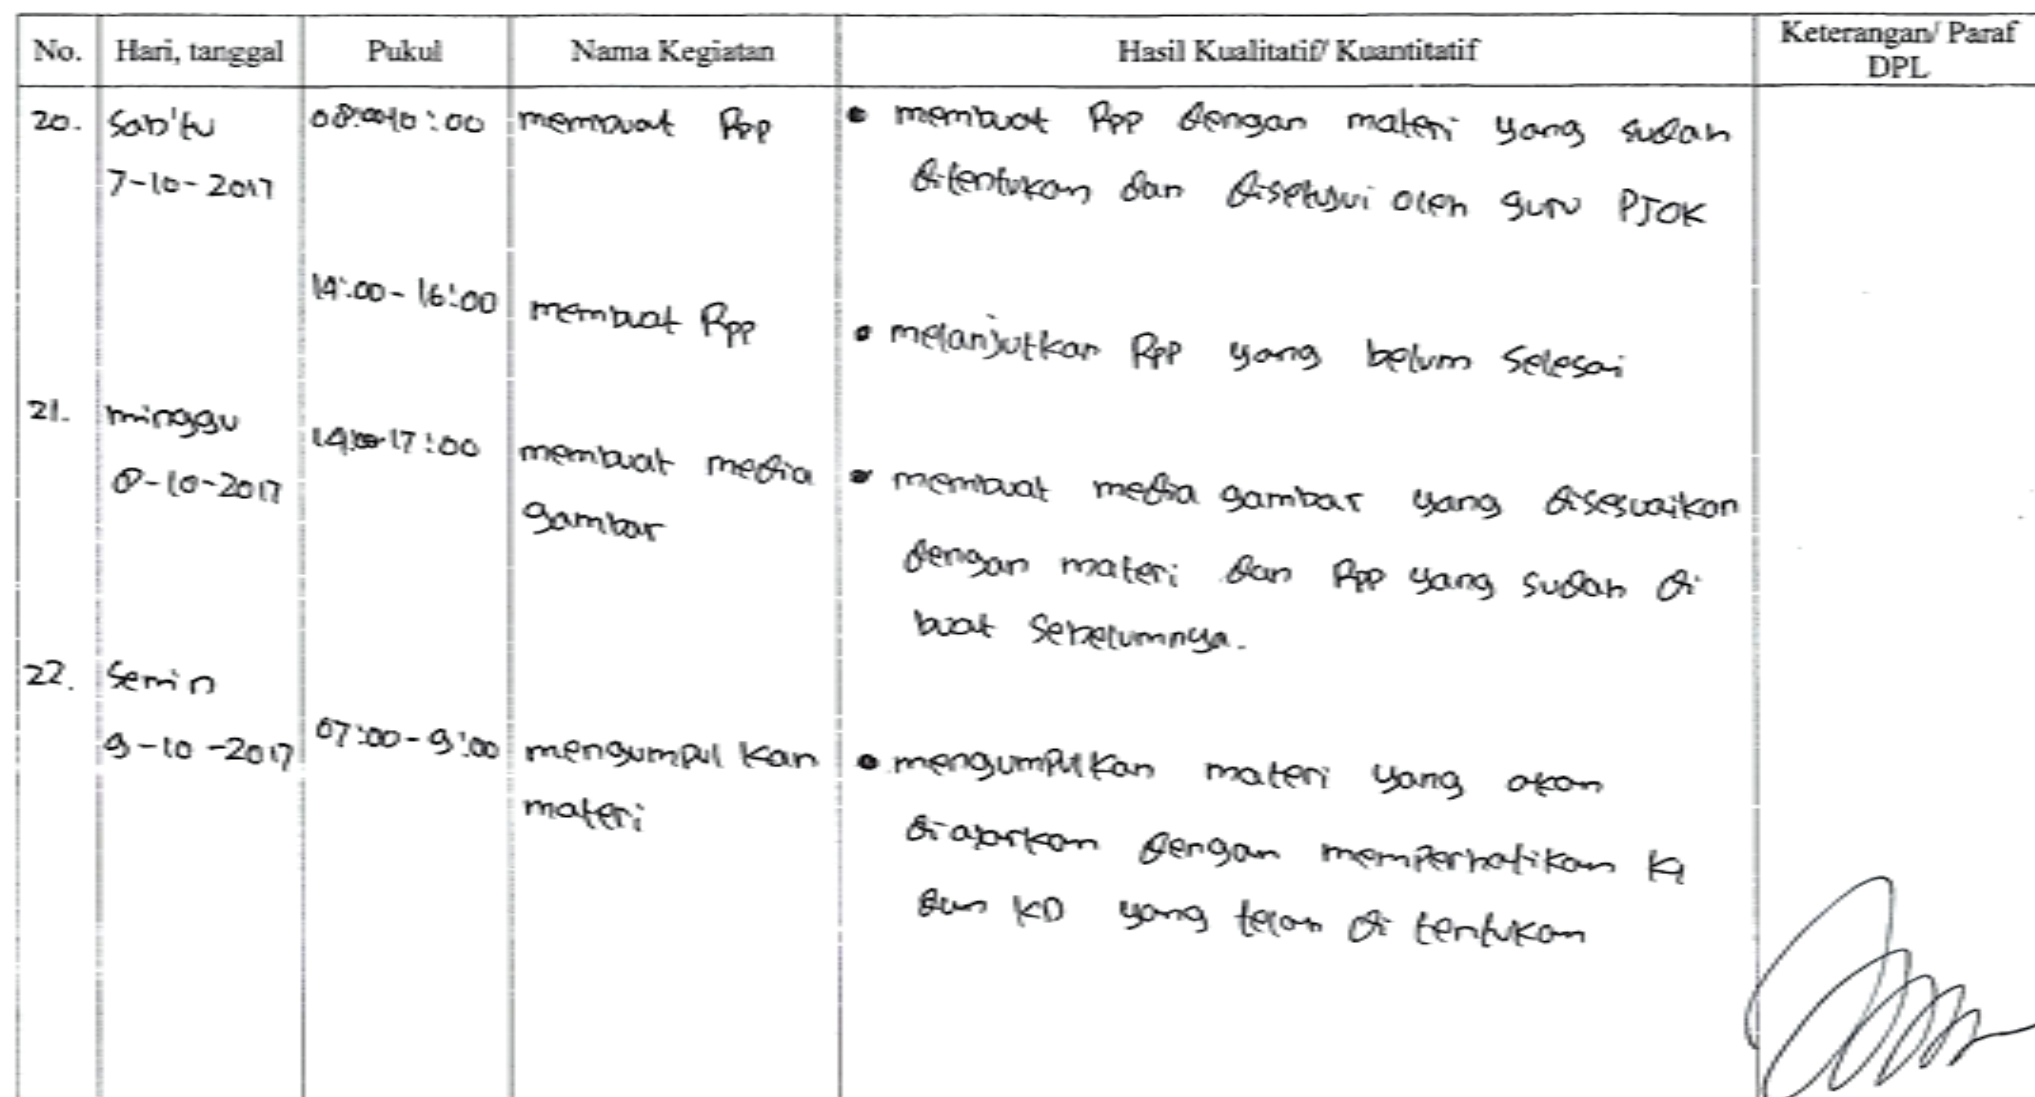 No. Hari, tanggal Pukul Nama Kegiatan Hasil Kualitatif/ Kuantitatif Keterangan/ Paraf DPL
20. Sab'tu 08:00-10:00 membuat Rpp • membuat Rpp dengan materi yang sudah
7-10-2017 ditentukan dan disetujui oleh guru PJOK
14:00-16:00 membuat Rpp • melanjutkan Rpp yang belum selesai
21. minggu 14:00-17:00 membuat media • membuat media gambar yang disesuaikan
8-10-2017 gambar dengan materi dan Rpp yang sudah di
buat sebelumnya.
22. Senin
9-10-2017 07:00-9:00 mengumpul kan • mengumpulkan materi yang akan
materi diajarkan dengan memperhatikan KI
dan KD yang telah di tentukan